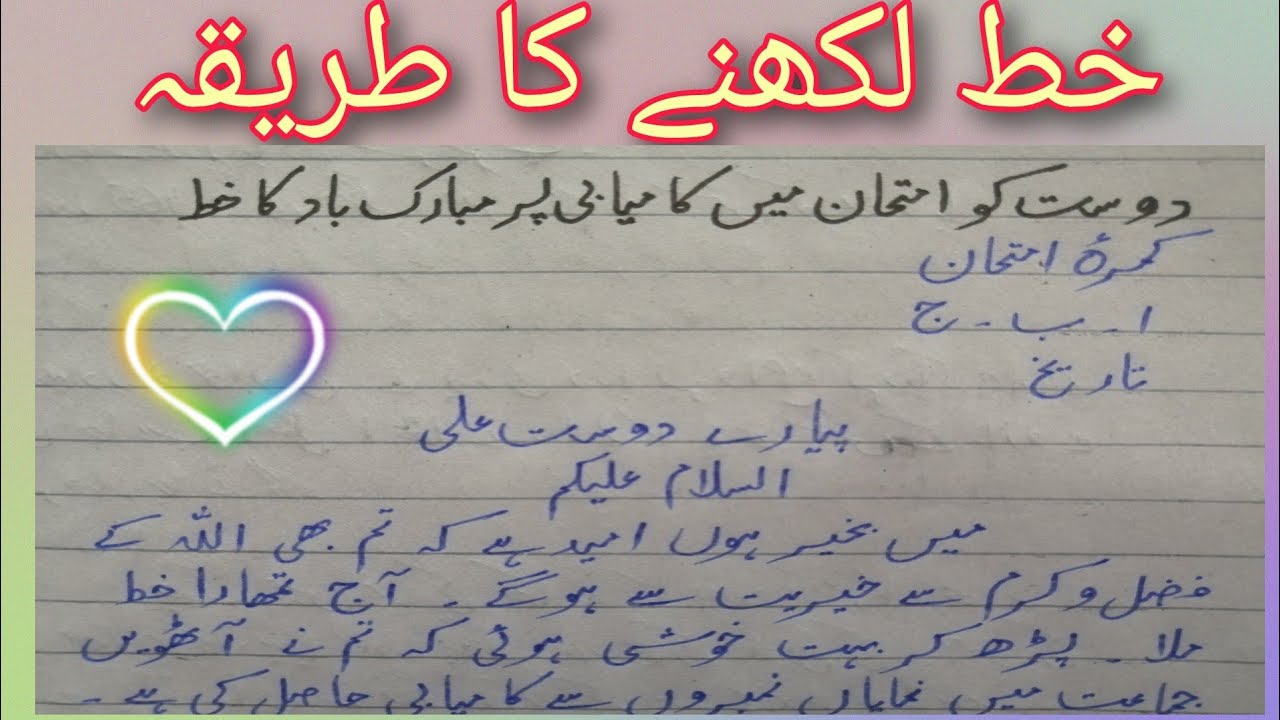 خط لکھنے کا طریقہ
دوست کو امتحان میں کامیابی پر مبارک باد کا خط
کمرۂ امتحان
ا۔ ب۔ ج
تاریخ
پیارے دوست علی
السلام علیکم
میں بخیر ہوں امید ہے کہ تم بھی اللہ کے
فضل و کرم سے خیریت سے ہوگے۔ آج تمھارا خط
ملا۔ پڑھ کر بہت خوشی ہوئی کہ تم نے آٹھویں
جماعت میں نمایاں نمبروں سے کامیابی حاصل کی ہے۔